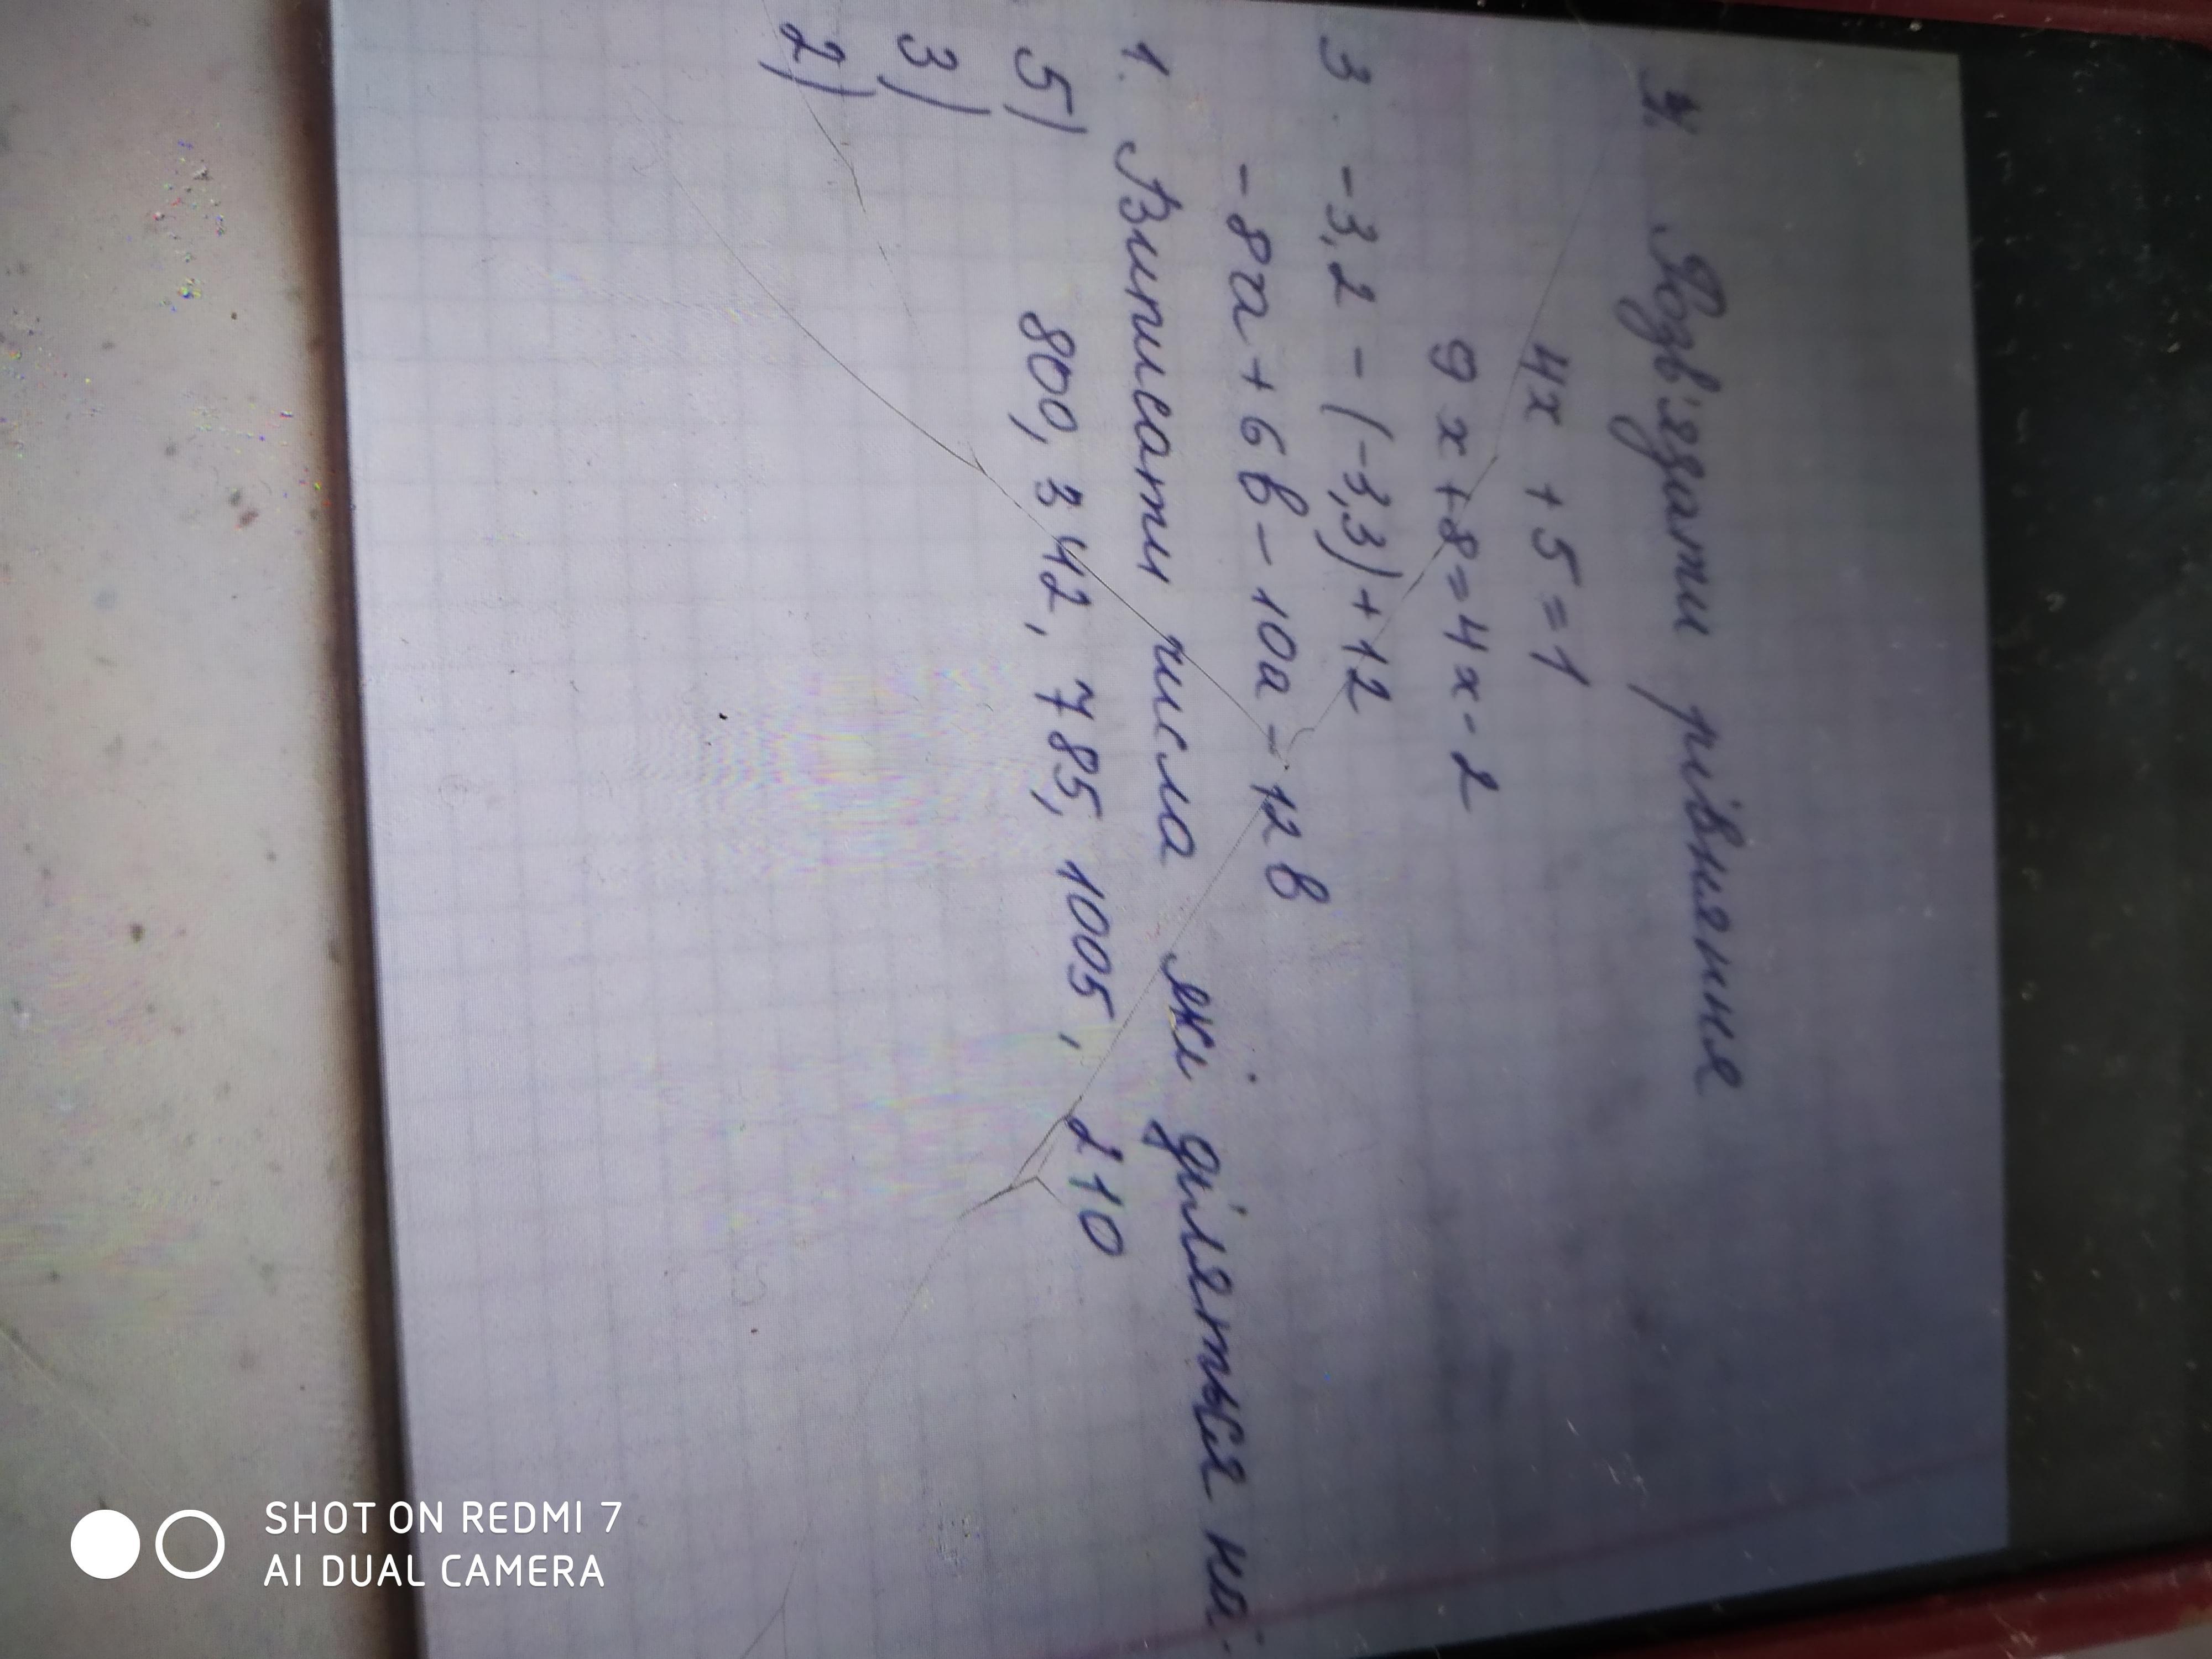 4. Розв'язати рівняння
4х + 5 = 1
9 х + 8 = 4 х - 2
3. -3,2 - (-3,3) + 12
-8а + 6 в - 10а - 12 в
1. Виписати числа які діляться на:
5) 800, 342, 785, 1005, 210
3)
2)
SHOT ON REDMI 7
AI DUAL CAMERA